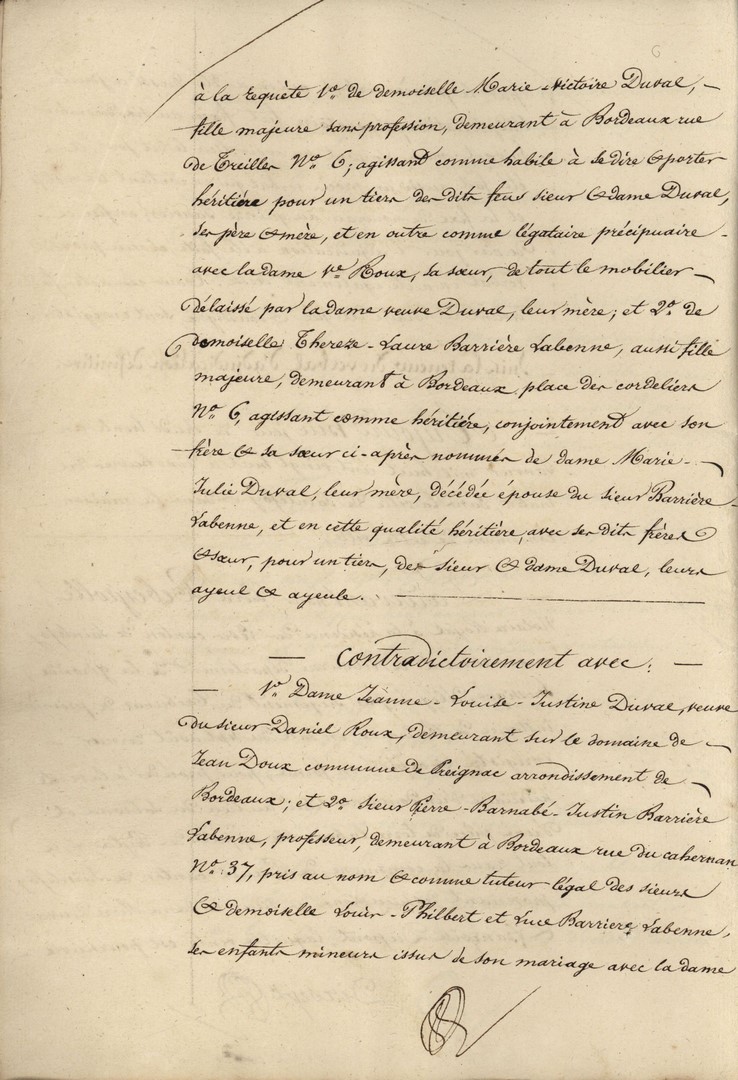 à la requête 1º de demoiselle Marie-Victoire Duval,
fille majeure sans profession, demeurant à Bordeaux rue
de Treilles Nº 6; agissant comme habile à se dire & porter
héritière pour un tiers des dits feus sieur & dame Duval,
ses père & mère, et en outre comme légataire précipuaire
avec la dame Vᵉ Roux, sa sœur, de tout le mobilier
délaissé par la dame veuve Duval, leur mère; et 2º de
demoiselle Thereze-Laure Barrière Labenne, aussi fille
majeure, demeurant à Bordeaux place des cordeliers
Nº 6, agissant comme héritière, conjointement avec son
frère & sa sœur ci-après nommés de dame Marie-
Julie Duval, leur mère, décédée épouse du sieur Barrière
Labenne, et en cette qualité héritière, avec ses dits frères
& sœur, pour un tiers, des sieur & dame Duval, leurs
ayeul & ayeule.
— Contradictoirement avec: —
— 1º Dame Jeanne-Louise-Justine Duval, veuve
du sieur Daniel Roux, demeurant sur le domaine de
Jean Doux commune de Preignac arrondissement de
Bordeaux; et 2º sieur Pierre-Barnabé-Justin Barrière
Labenne, professeur, demeurant à Bordeaux rue du cahernan
Nº 37, pris au nom & comme tuteur légal des sieurs
& demoiselle Louis-Philbert et Luce Barriere Labenne,
ses enfants mineurs issus de son mariage avec la dame